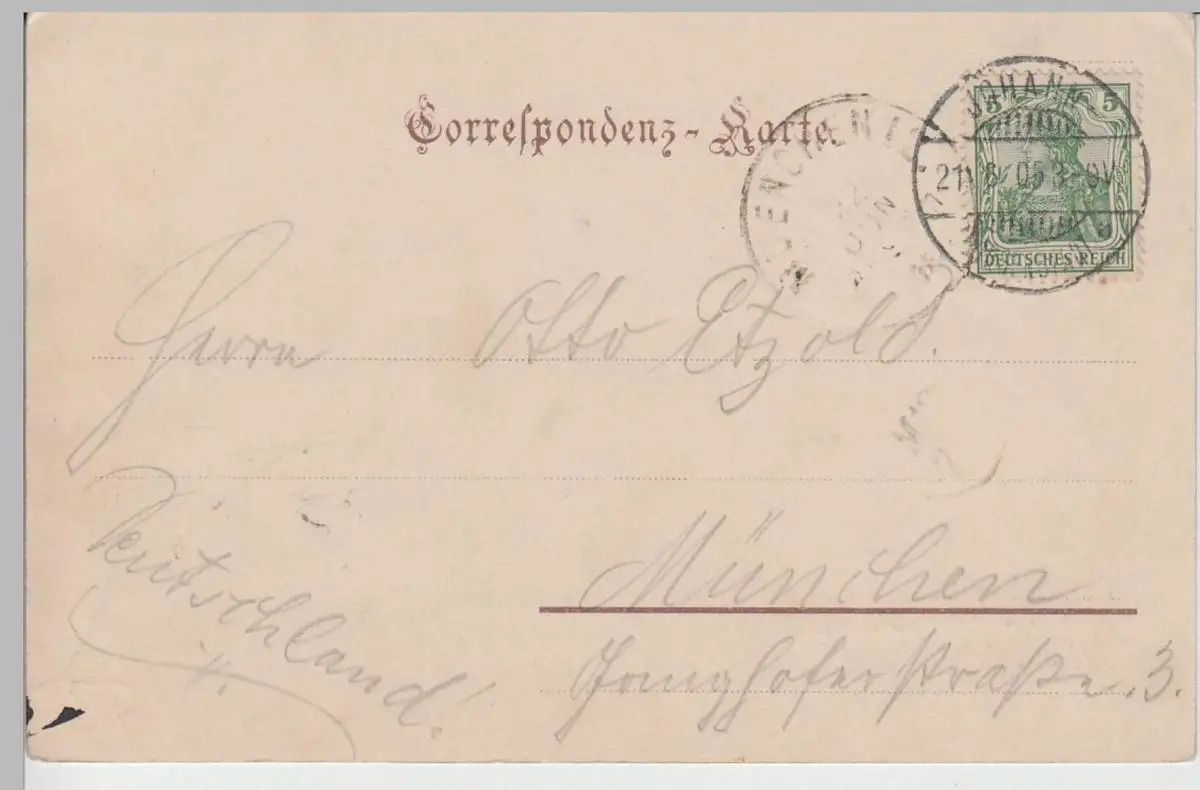 Correspondenz-Karte.
5 5
JOHANN
21 6 05 8-9V
DEUTSCHES REICH
Herrn Otto Etzold.
München
Deutschland!
3.